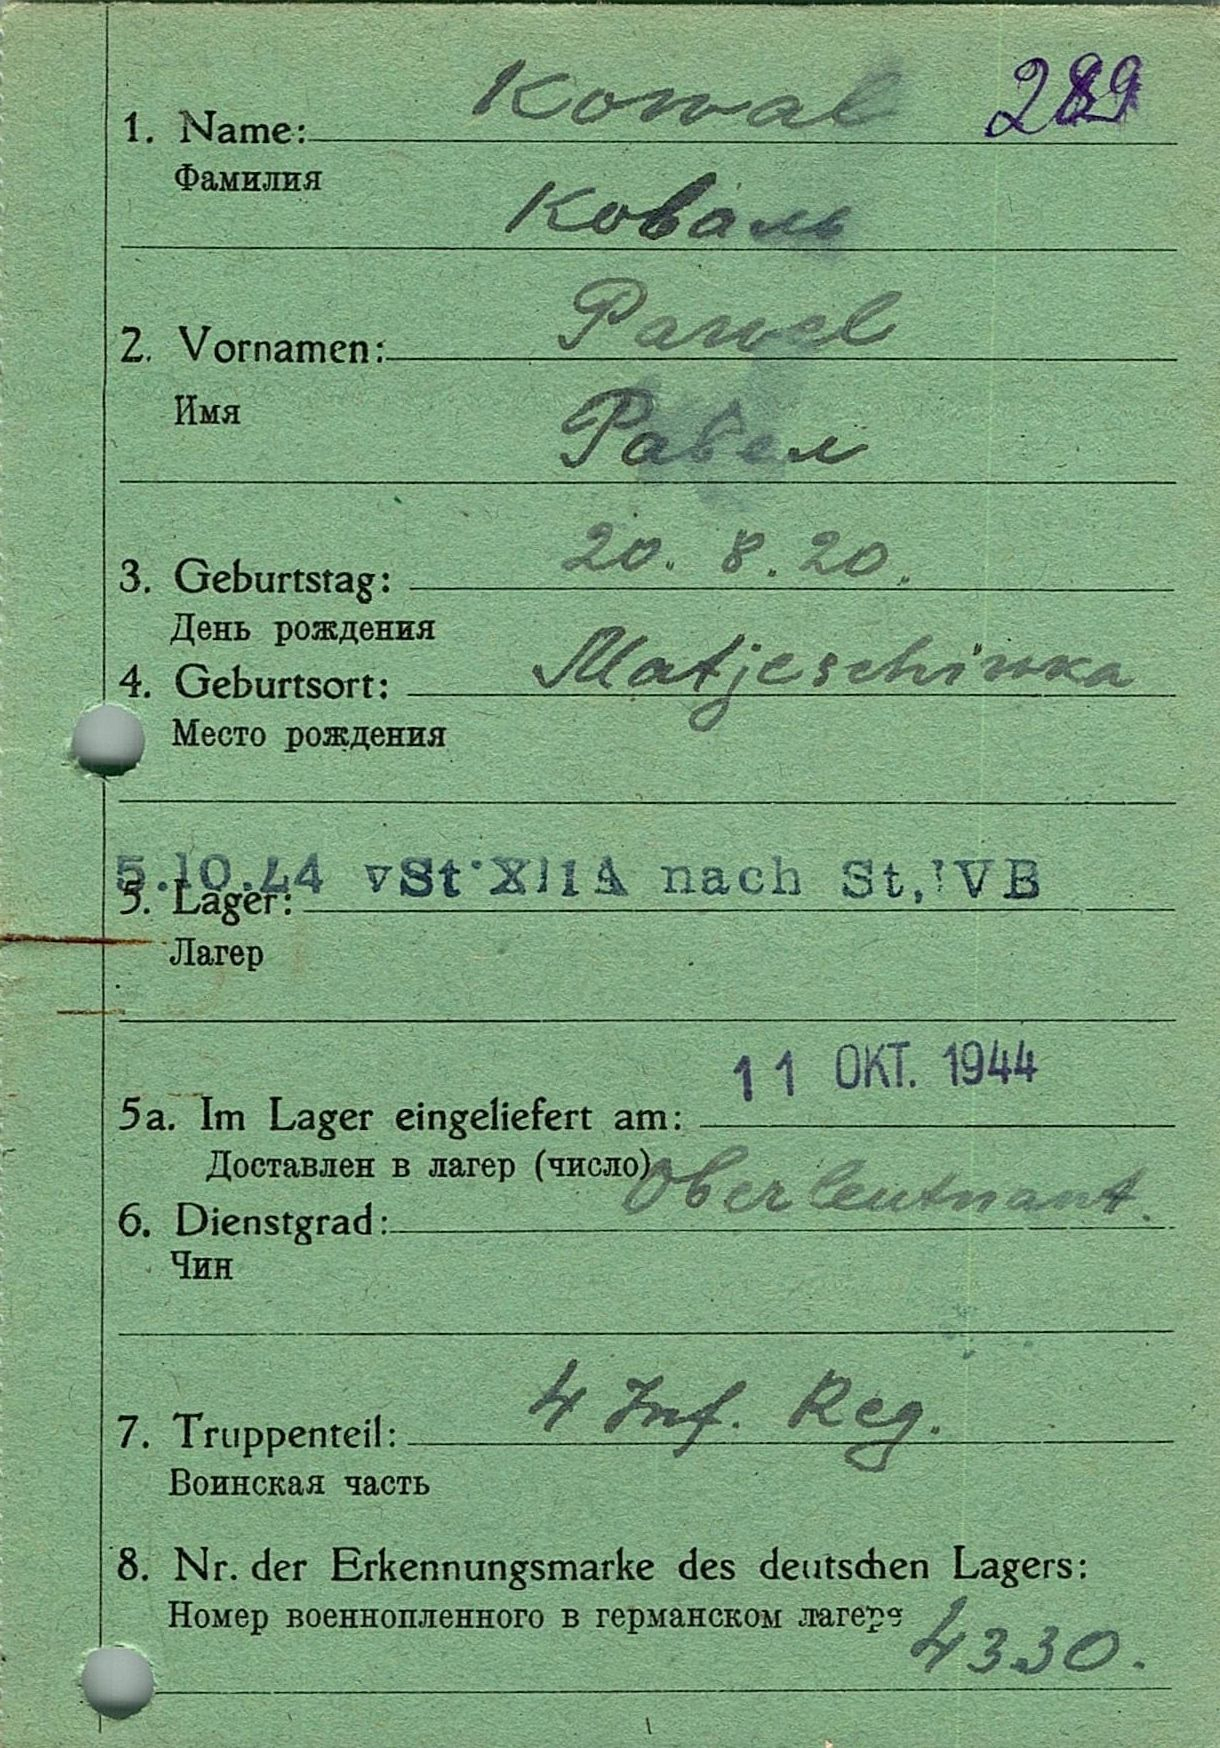 Kowal 289
1. Name:
Фамилия
Коваль
Pawel
2. Vornamen:
Имя
Равел
20. 8. 20.
3. Geburtstag:
День рождения
Matjeschinka
4. Geburtsort:
Место рождения
5.10.44 vSt XIIA nach St, IVB
5. Lager:
Лагер
11 OKT. 1944
5a. Im Lager eingeliefert am:
Доставлен в лагер (число)
Oberleutnant.
6. Dienstgrad:
Чин
4 Inf. Reg.
7. Truppenteil:
Воинская часть
8. Nr. der Erkennungsmarke des deutschen Lagers:
Номер военнопленного в германском лагере
4330.